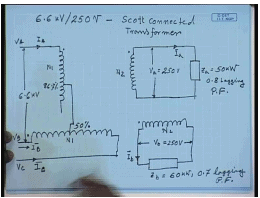 6.6 kV/250V - Scott connected
Transformer
VA
IA
N1
86.6%
6.6 kV
50%
VB
IB
N1
VC
IB
N2
Ia
Va = 250V
Sa = 50kVA
0.8 lagging
P.F.
N2
Ib
Vb = 250V
Sb = 60kVA, 0.7 lagging
P.F.